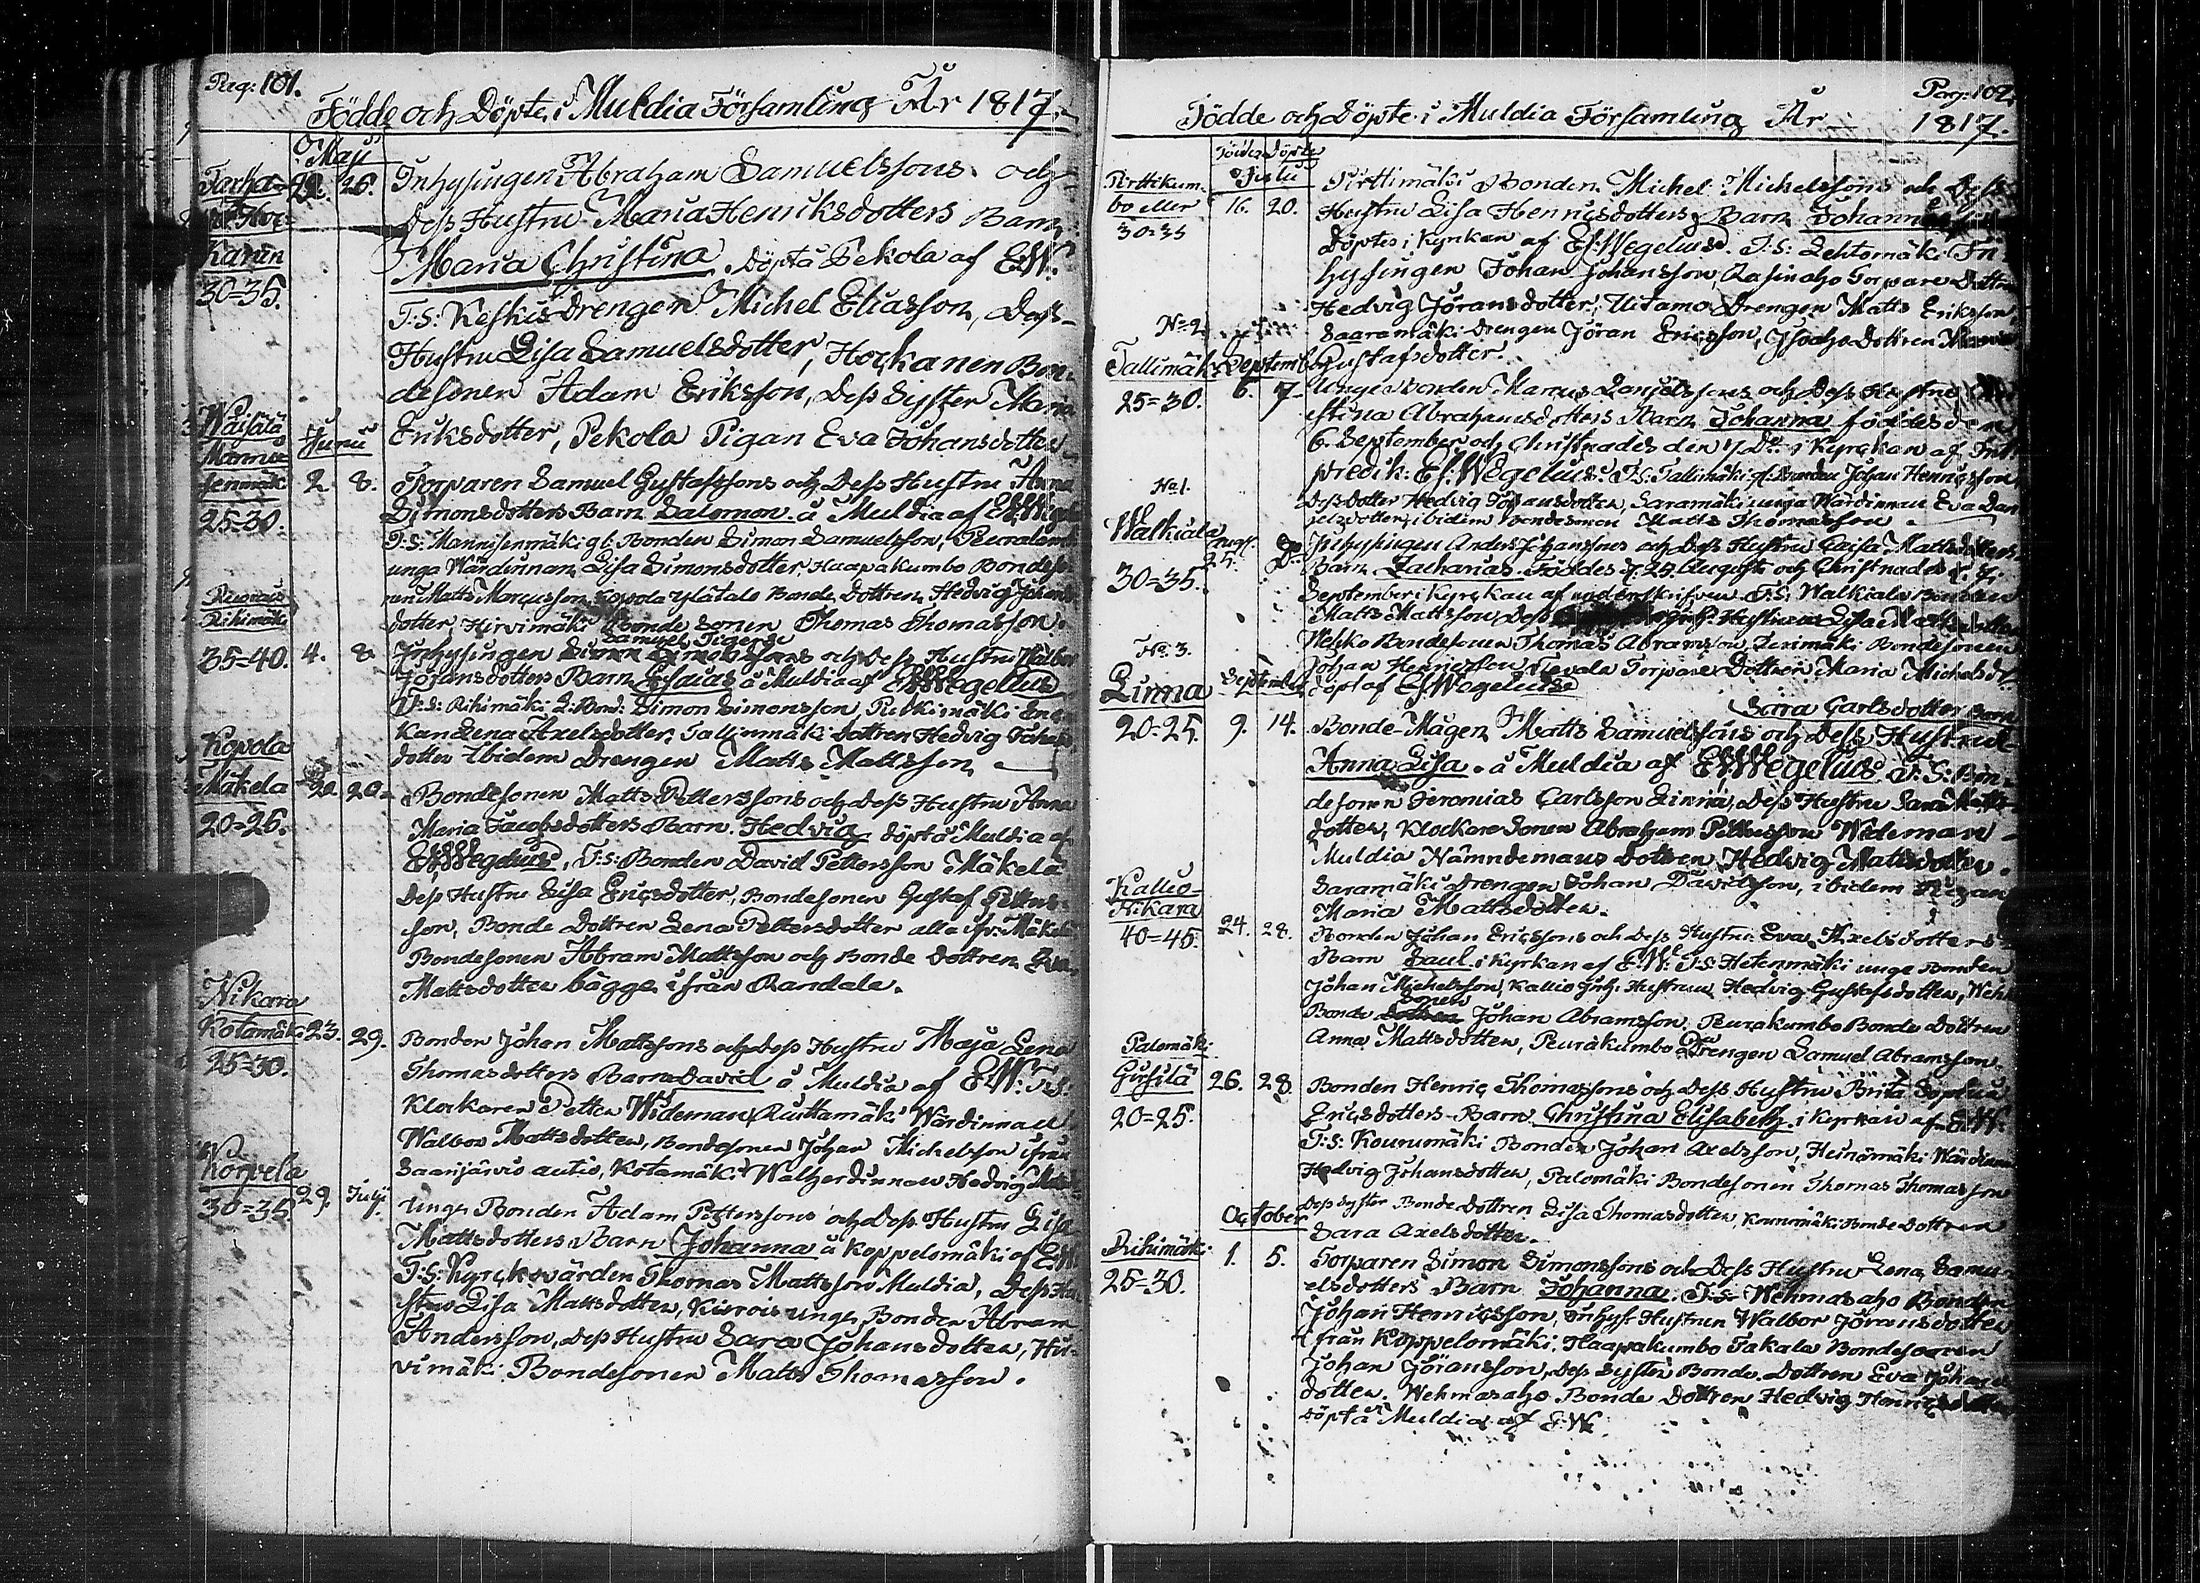 Pag: 101.
Födde och Döpte i Muldia Församling År 1817.
Maji
22. 25. Inhysingen Abraham Samuelssons och
Dess Hustru Maria Henriksdotters Barn
Karin
Maria Christina. Döpt å Pekola af E.W.
30=35.
T:S: Keskis Drengen Michel Eliasson, Dess
Hustru Lisa Samuelsdotter, Hockanen Bon-
desonen Adam Eriksson, Dess Syster Maria
Eriksdotter, Pekola Pigan Eva Johansdotter
Junii
2. 8. Torparen Samuel Gustafssons och Dess Hustru Anna
Simonsdotters Barn Salomon å Muldia af
25=30.
T:S: Mannisenmäki gl. Bonden Simon Samuelsson,
unga Wärdinnan Lisa Simonsdotter, Haapakumbo
Matts Marcusson, Kopola Ylätalo Bonde Dottren Hedvig
dotter, Hirvimäki Bonde Sonen Thomas Thomasson.
Rihimäki
35=40. 4. 8. Inhysingen Samuel och Dess Hustru Walbor
Johansdotters Barn Esaias å Muldia af Es. Wegelius
T:S: Rihimäki Simon Simonsson,
Lena Axelsdotter, Tallimäki Dottren Hedvig
dotter Ibidem Drengen Matts Mattsson
Kopola
Mäkela 20. Bondesonen Matts Petterssons och Dess Hustru Anna
20=25.
Maria Jacobsdotters Barn Hedvig döpt å Muldia af
Es. Wegelius, T:S: Bonden David Pettersson Mäkelä
Dess Hustru Lisa Ericsdotter, Bondesonen Gustaf Petters-
son, Bonde Dottren Lena Pettersdotter alla ifr. Mäkelä
Bondesonen Abram Mattsson och Bonde Dottren Eva
Mattsdotter bägge ifrån Randala.
Nikara
Kotamäki 23. 29. Bonden Johan Mattssons och Dess Hustru Maja Lena
25=30.
Thomasdotters Barn David å Muldia af E.W: T.S.
Klockaren Petter Wideman, Ruuttamäki Wärdinnan
Walbor Mattsdotter, Bondesonen Johan Michelsson ifrån
Saarijärvis autio, Kotamäki Hedvig
Korpela
30=35. 29. Julii Unge Bonden Adam Petterssons och Dess Hustru Lisa
Mattsdotters Barn Johanna å Koppelomäki af E.W.
T:S: Kyrckovärden Thomas Mattsson Muldia, Dess Hu-
stru Lisa Mattsdotter, unge Bonden Abram
Andersson, Dess Hustru Sara Johansdotter, Hir-
vimäki Bondesonen Matts Thomasson.
Pag: 102.
Födde och Döpte i Muldia Församling År 1817.
Födde Döpte
Julii
Pirttikum-
bo eller
30=35
16. 20. Pirttimäki Bonden Michel Michelssons och Dess
Hustru Lisa Henricsdotters Barn
Döptes i Kyrkan af Es. Wegelius. T:S: Lehtomäki In-
hysingen Johan Johansson, Torpare Dottren
Hedvig Jöransdotter, Drengen Matts Ericsson
Saaramäki Drengen Jöran Ericsson, Dottren
Gustafsdotter.
No 2.
Tallimäki Septemb.
25=30. 6. 7. Unge Bonden Marcus Danjelssons och Dess Hustru
stina Abrahamsdotters Barn Johanna föddes den
6. September och Christnades den 7. Do i Kyrckan af
predik. Es. Wegelius. T:S: Tallimäki gl. Bonden Johan Henricsson
Dess Dotter Hedvig Johansdotter, Saramäki unga Wärdinnan Eva Dan-
jelsdotter, ibidem Bondesonen Matts Thomasson.
No 1.
Walkiala Aug.
30=35. Inhysingen Anders Johanssons och Dess Hustru Caisa Mattsdotters
Barn Zacharias. Föddes d. Augusti och Christnades d. 7.
September i Kyrckan af T:S: Walkiala Bonden
Matts Mattsson, Dess Hustrun Lisa
Wehko Bondesonen Thomas Abramsson, Bondesonen
Johan Henricsson, Torpare Dottren Maria Michelsdr.
Döpt af Es. Wegelius
No. 3.
Linna September
Sara Carlsdotter Barn
20=25. 9. 14. Bonde-Mågen Matts Samuelssons och Dess Hustru
Anna Lisa å Muldia af Es. Wegelius. T:S: Bon-
desonen Jeremias Carlsson Linna, Dess Hustru Sara Matts-
dotter, Klockare Sonen Abraham Pettersson Wideman
Muldia Nämndemans Dottren Hedvig Mattsdotter.
Saramäki Drengen Johan Davidsson, ibidem Pigan
Maria Mattsdotter.
Kallio-
Nikara
40=45. 24. 28. Bonden Johan Ericssons och Dess Hustru Eva Axelsdotters
Barn Saul i Kyrkan af E.W: T:S: Hetenmäki unge Bonden
Johan Michelsson, Kallio Inh. Hustrun Hedvig Gustafsdotter, Wehk
Bonde Sonen Johan Abramsson, Peurakumbo Bonde Dottren
Anna Mattsdotter, Peurakumbo Drengen Samuel Abramsson.
Palomäki
26. 28. Bonden Henric Thomassons och Dess Hustru Brita Sophia
20=25.
Ericsdotters Barn Christina Elisabeth i Kyrkan af E.W:
T:S: Kourumäki Bonden Johan Axelsson, Heinämäki Wärdinnan
Hedvig Johansdotter, Palomäki Bondesonen Thomas Thomasson
Dess Syster Bonde Dottren Lisa Thomasdotter, Kourumäki Bonde Dottren
Sara Axelsdotter.
October
Rihimäki 1. 5. Torparen Simon Simonssons och Dess Hustru Lena Samu-
25=30.
elsdotters Barn Johanna. T:S: Wehmasaho Bonden
Johan Henricsson, Inhys: Hustrun Walbor Jöransdotter
från Koppelomäki, Haapakumbo Takala Bondesonen
Johan Jöransson, Dess Syster Bonde Dottren Eva
dotter, Wehmasaho Bonde Dottren Hedvig
döpt å Muldia af E:W.